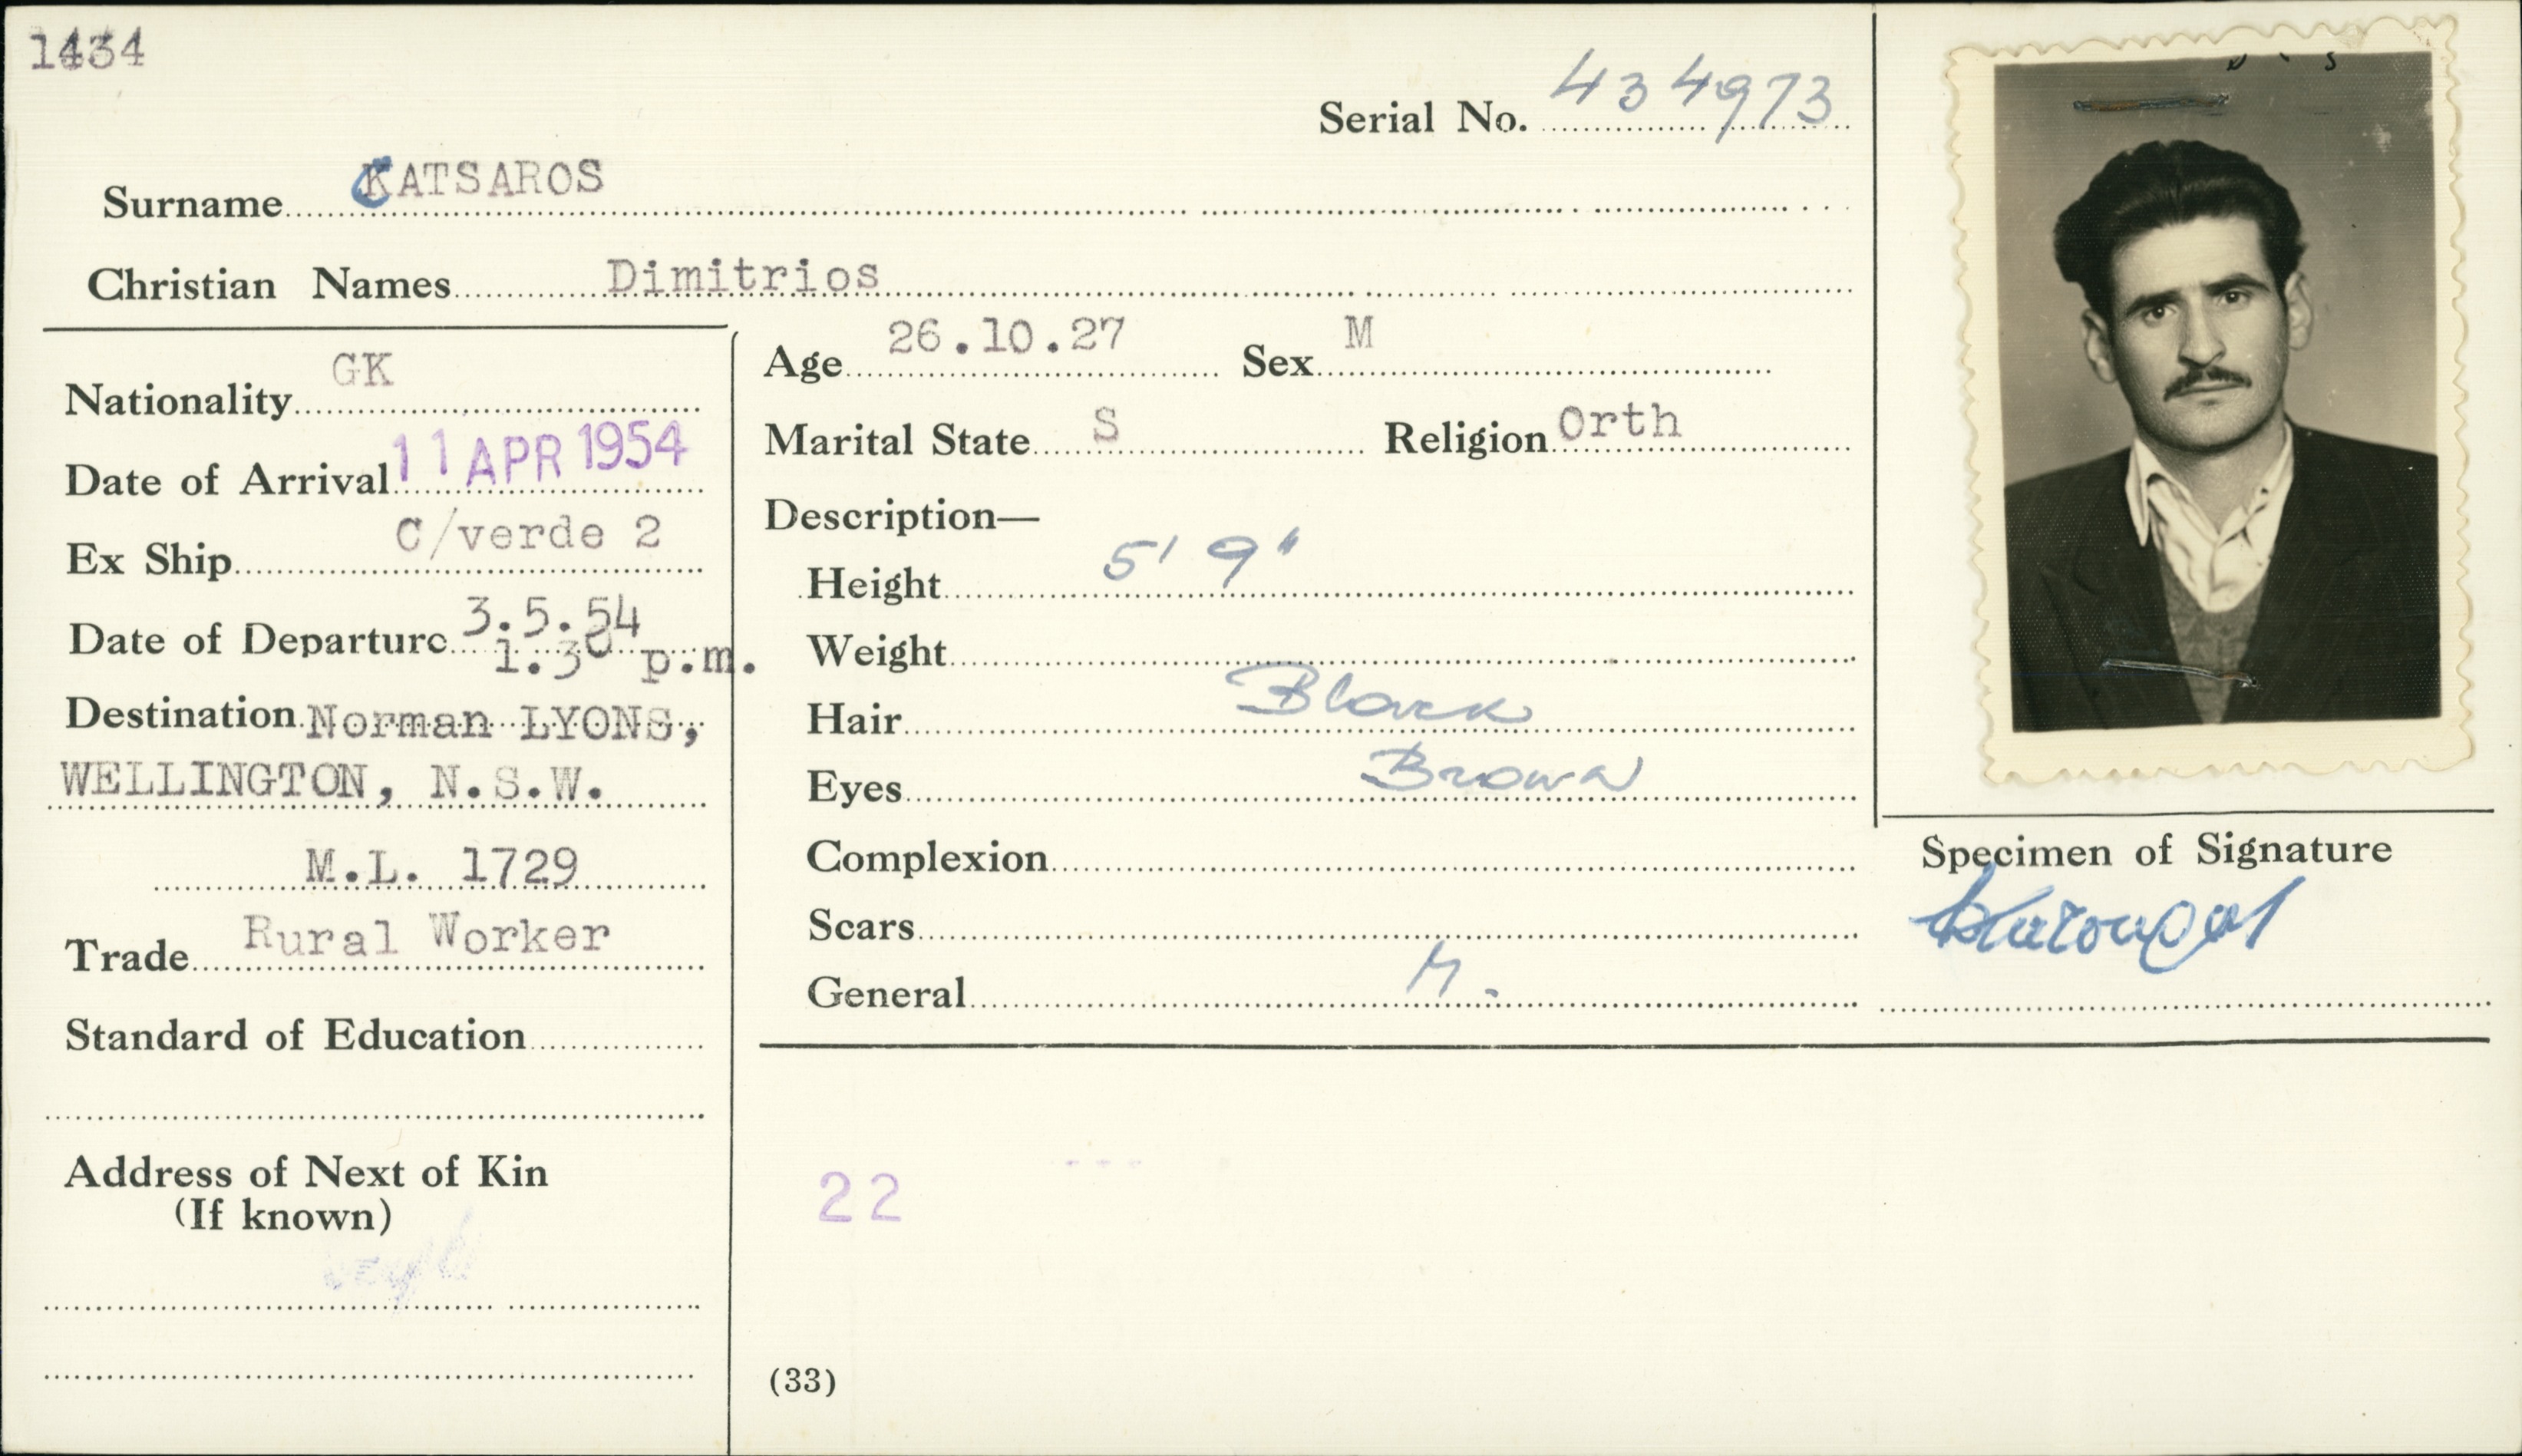 1434
Serial No. 434973
Surname CATSAROS
Christian Names Dimitrios
Nationality GK
Date of Arrival 11 APR 1954
Ex Ship C/verde 2
Date of Departure 3.5.54
1.30 p.m.
Destination Norman LYONS,
WELLINGTON, N.S.W.
M.L. 1729
Trade Rural Worker
Standard of Education
Address of Next of Kin
(If known)
Age 26.10.27 Sex M
Marital State S Religion Orth
Description—
Height 5' 9"
Weight
Hair Black
Eyes Brown
Complexion
Scars
General M.
22
(33)
Specimen of Signature